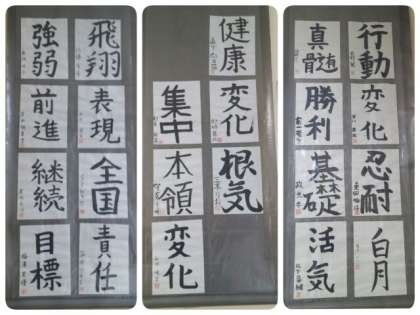 強弱
飛翔
前進
表現
継続
全国
目標
責任
健康
集中
変化
本領
根気
変化
真髄
行動
勝利
変化
基礎
忍耐
活気
白月